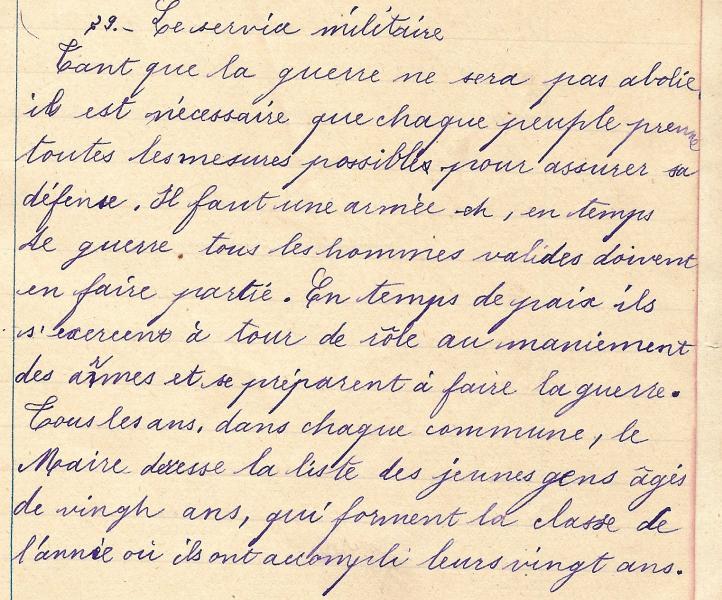 29.- Le servia militaire
Tant que la guerre ne sera pas abolie,
il est nécessaire que chaque peuple prenne
toutes les mesures possibles pour assurer sa
défense. Il faut une armée et, en temps
de guerre tous les hommes valides doivent
en faire partie. En temps de paix ils
s'exercent à tour de rôle au maniement
des armes et se préparent à faire la guerre.
Tous les ans, dans chaque commune, le
Maire dresse la liste des jeunes gens âgés
de vingh ans, qui forment la classe de
l'année où ils ont accompli leurs vingt ans.